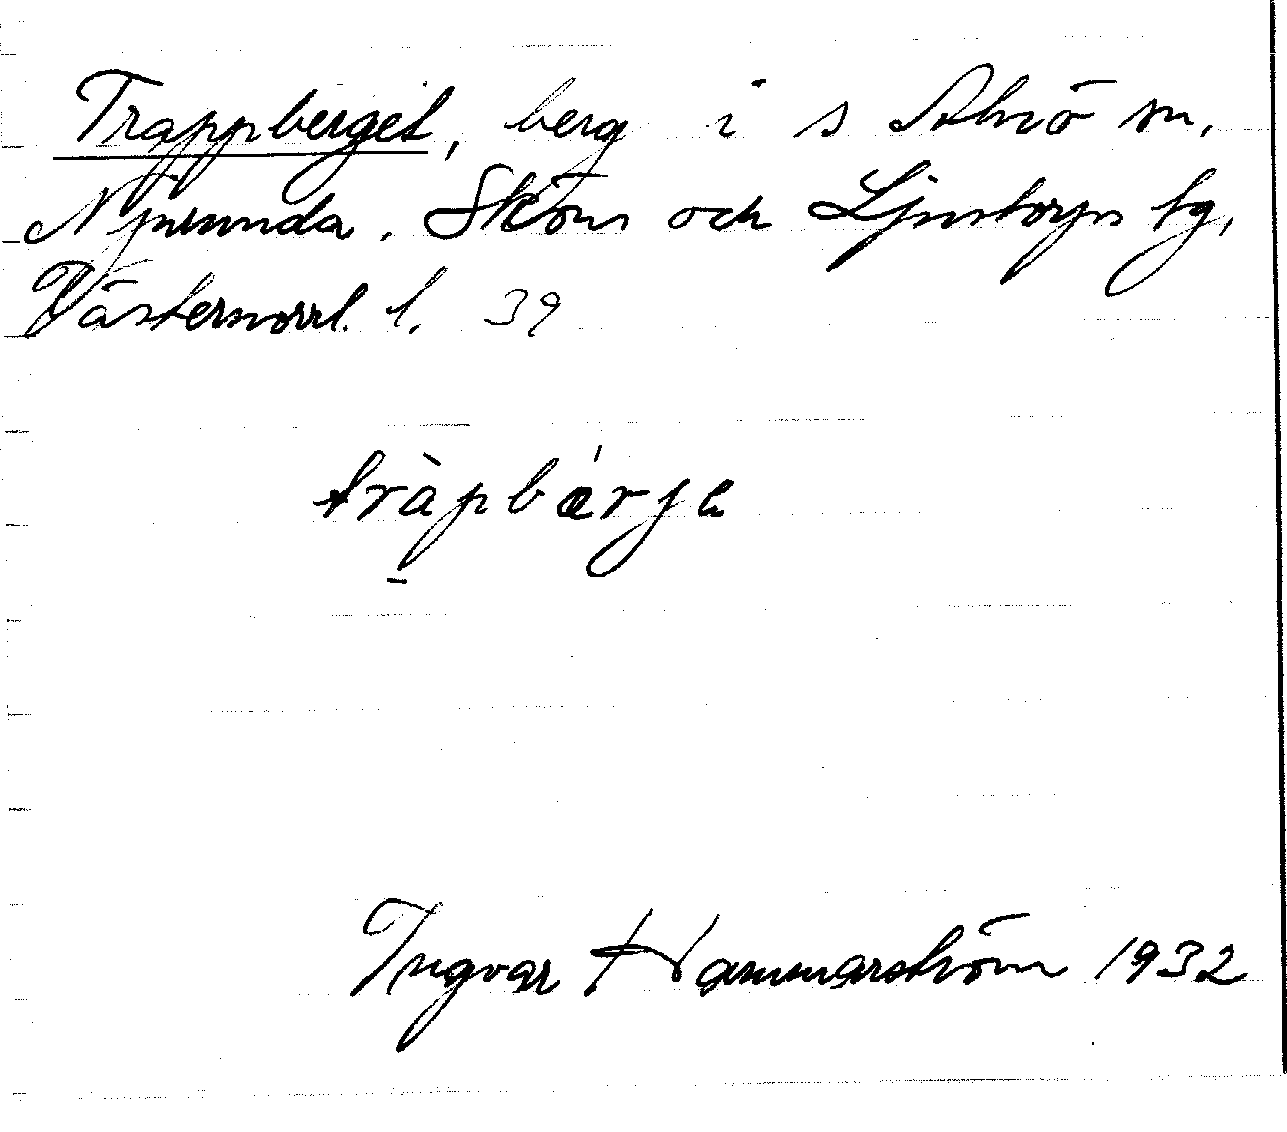 Trappberget, berg i s Alnö sn,
Njurunda, Sköns och Ljustorps tg,
Västernorrl. l. 39
tràpbǽrje
Ingvar Hammarström 1932